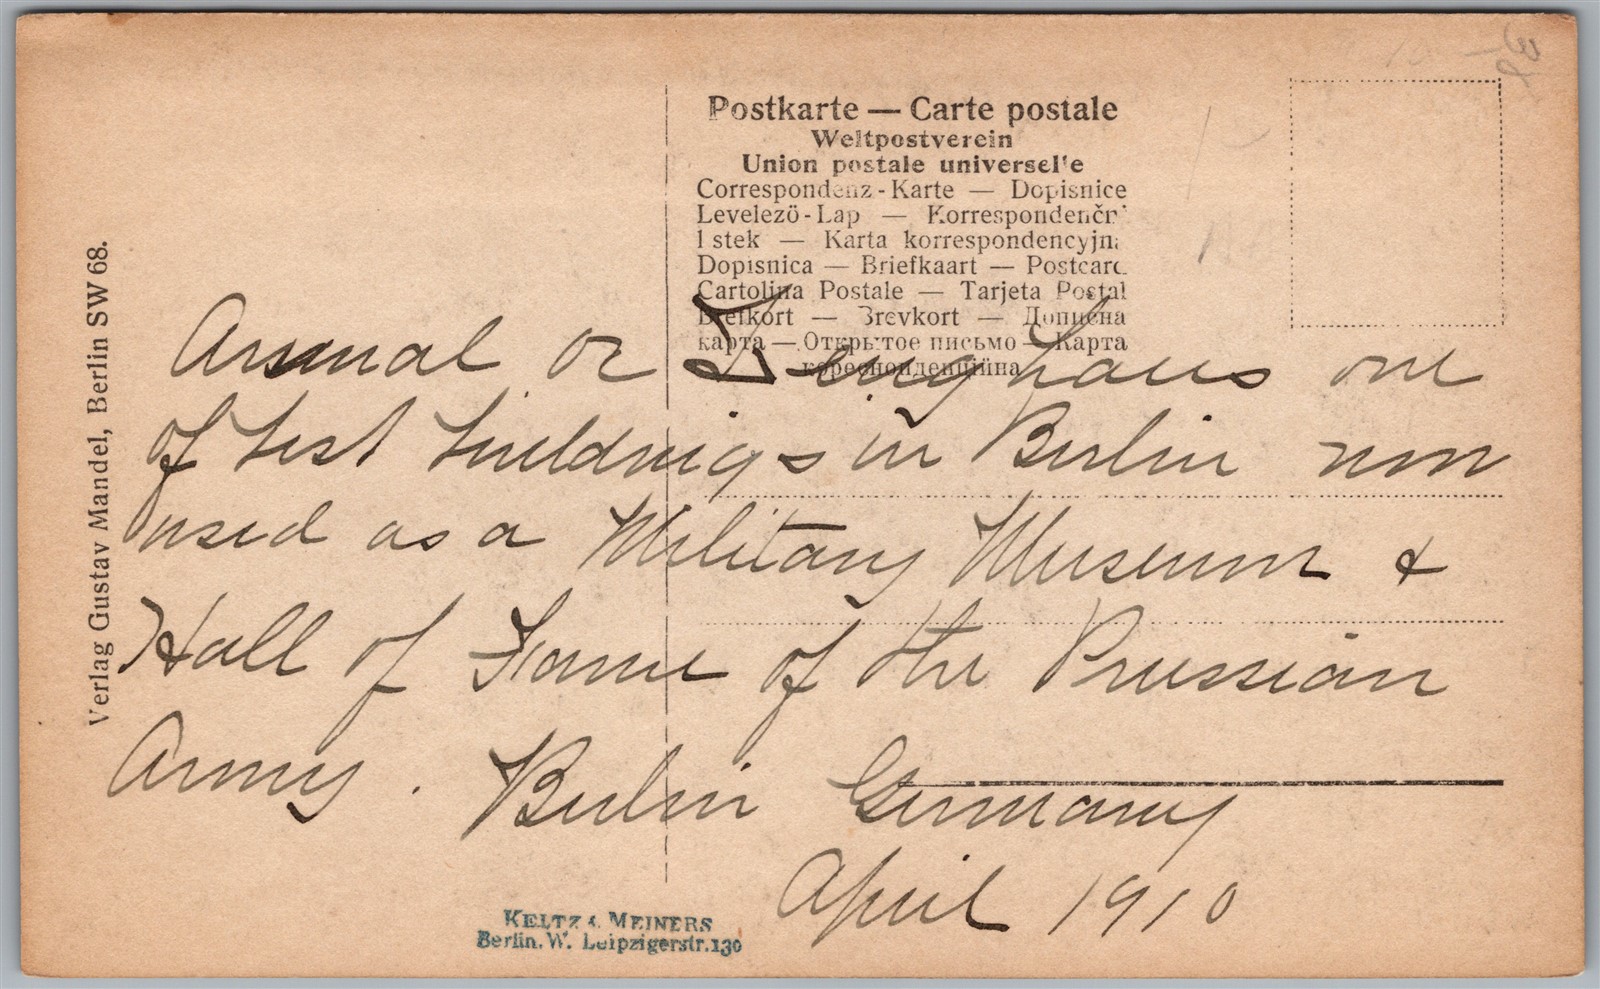 Postkarte — Carte postale
Weltpostverein
Union postale universelle
Correspondenz-Karte — Dopisnice
Levelezö-Lap — Korrespondenčn
l stek — Karta korrespondencyjn
Dopisnica — Briefkaart — Postcard
Cartolina Postale — Tarjeta Postal
Brefkort — Brevkort — Дописна
карта — Открытое письмо — Карта
кореспонденційна
Verlag Gustav Mandel, Berlin SW 68.
Arsenal or Zeughaus one
of best buildings in Berlin now
used as a Military Museum &
Hall of Fame of the Prussian
Army. Berlin Germany
April 1910
KELTZ & MEINERS
Berlin. W. Leipzigerstr. 130